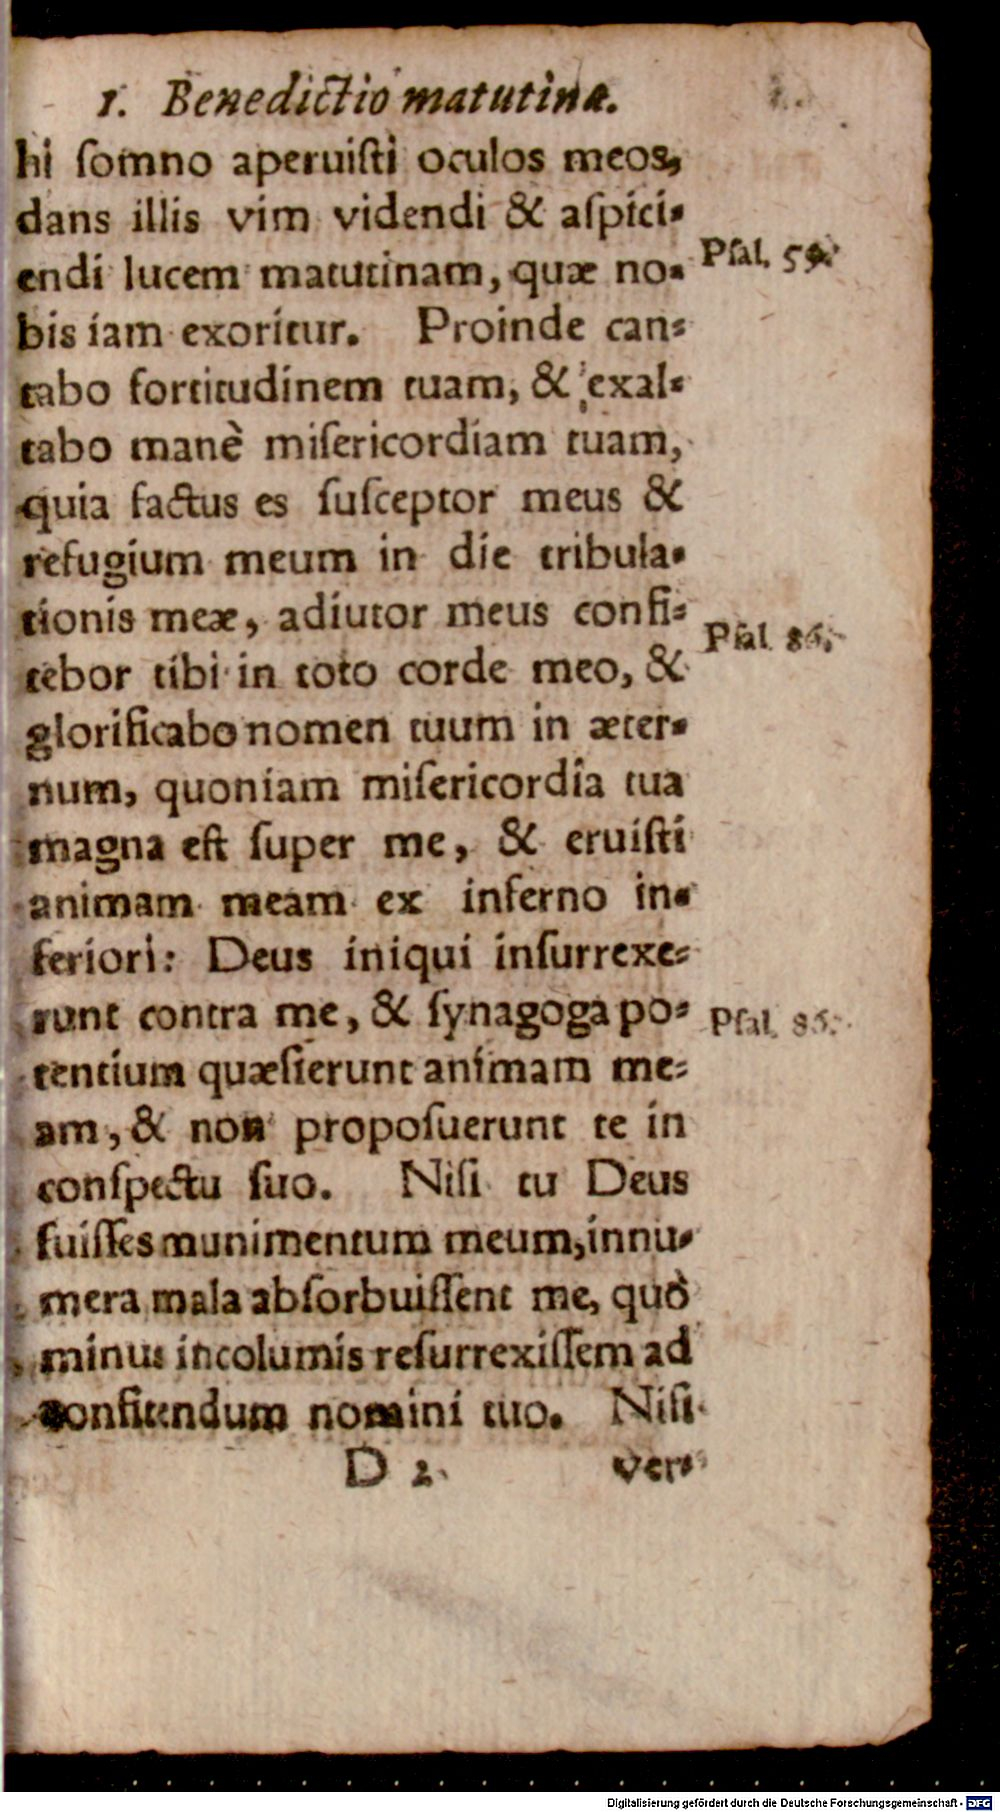 1. Benedictio matutina.
hi ſomno aperuiſti oculos meos,
dans illis vim videndi & aſpici-
endi lucem matutinam, quæ no-
Pſal. 59.
bis iam exoritur. Proinde can-
tabo fortitudinem tuam, & exal-
tabo manè miſericordiam tuam,
quia factus es ſuſceptor meus &
refugium meum in die tribula-
tionis meæ, adiutor meus confi-
Pſal. 86.
tebor tibi in toto corde meo, &
glorificabo nomen tuum in æter-
num, quoniam miſericordia tua
magna eſt ſuper me, & eruiſti
animam meam ex inferno in-
feriori: Deus iniqui inſurrexe-
runt contra me, & ſynagoga po-
Pſal. 86.
tentium quæſierunt animam me-
am, & non propoſuerunt te in
conſpectu ſuo. Niſi tu Deus
fuiſſes munimentum meum, innu-
mera mala abſorbuiſſent me, quò
minus incolumis reſurrexiſſem ad
confitendum nomini tuo. Niſi
D 2 ver-
Digitalisierung gefördert durch die Deutsche Forschungsgemeinschaft - DFG